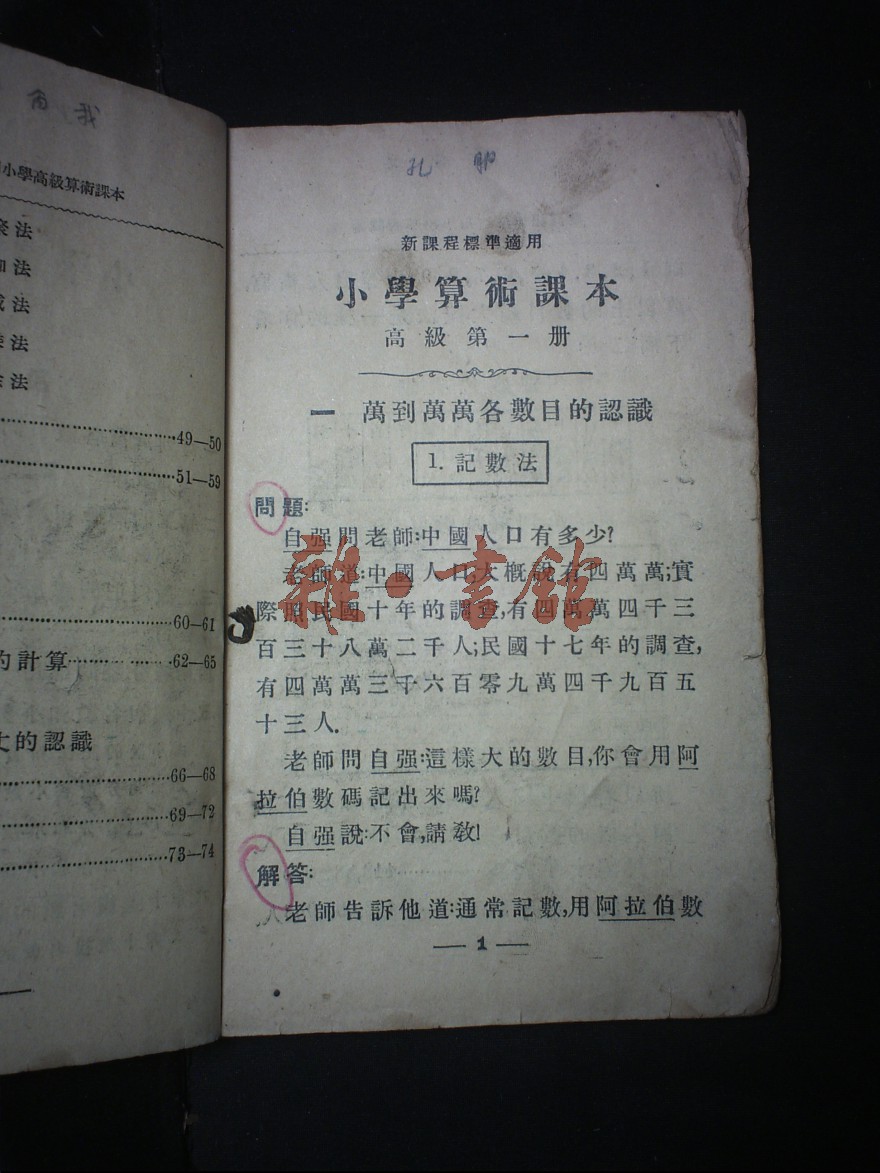 小學高級算術課本
法
法
法
法
法
49—50
51—59
60—61
計算 62—65
的認識
66—68
69—72
73—74
孔
新課程標準適用
小學算術課本
高級第一册
一 萬到萬萬各數目的認識
1. 記數法
問題:
自强問老師:中國人口有多少?
老師道:中國人口,大概說有四萬萬;實
際照民國十年的調查,有四萬萬四千三
百三十八萬二千人;民國十七年的調查,
有四萬萬三千六百零九萬四千九百五
十三人.
老師問自强:這樣大的數目,你會用阿
拉伯數碼記出來嗎?
自强說:不會,請教!
解答:
老師告訴他道:通常記數,用阿拉伯數
— 1 —
雜·書館